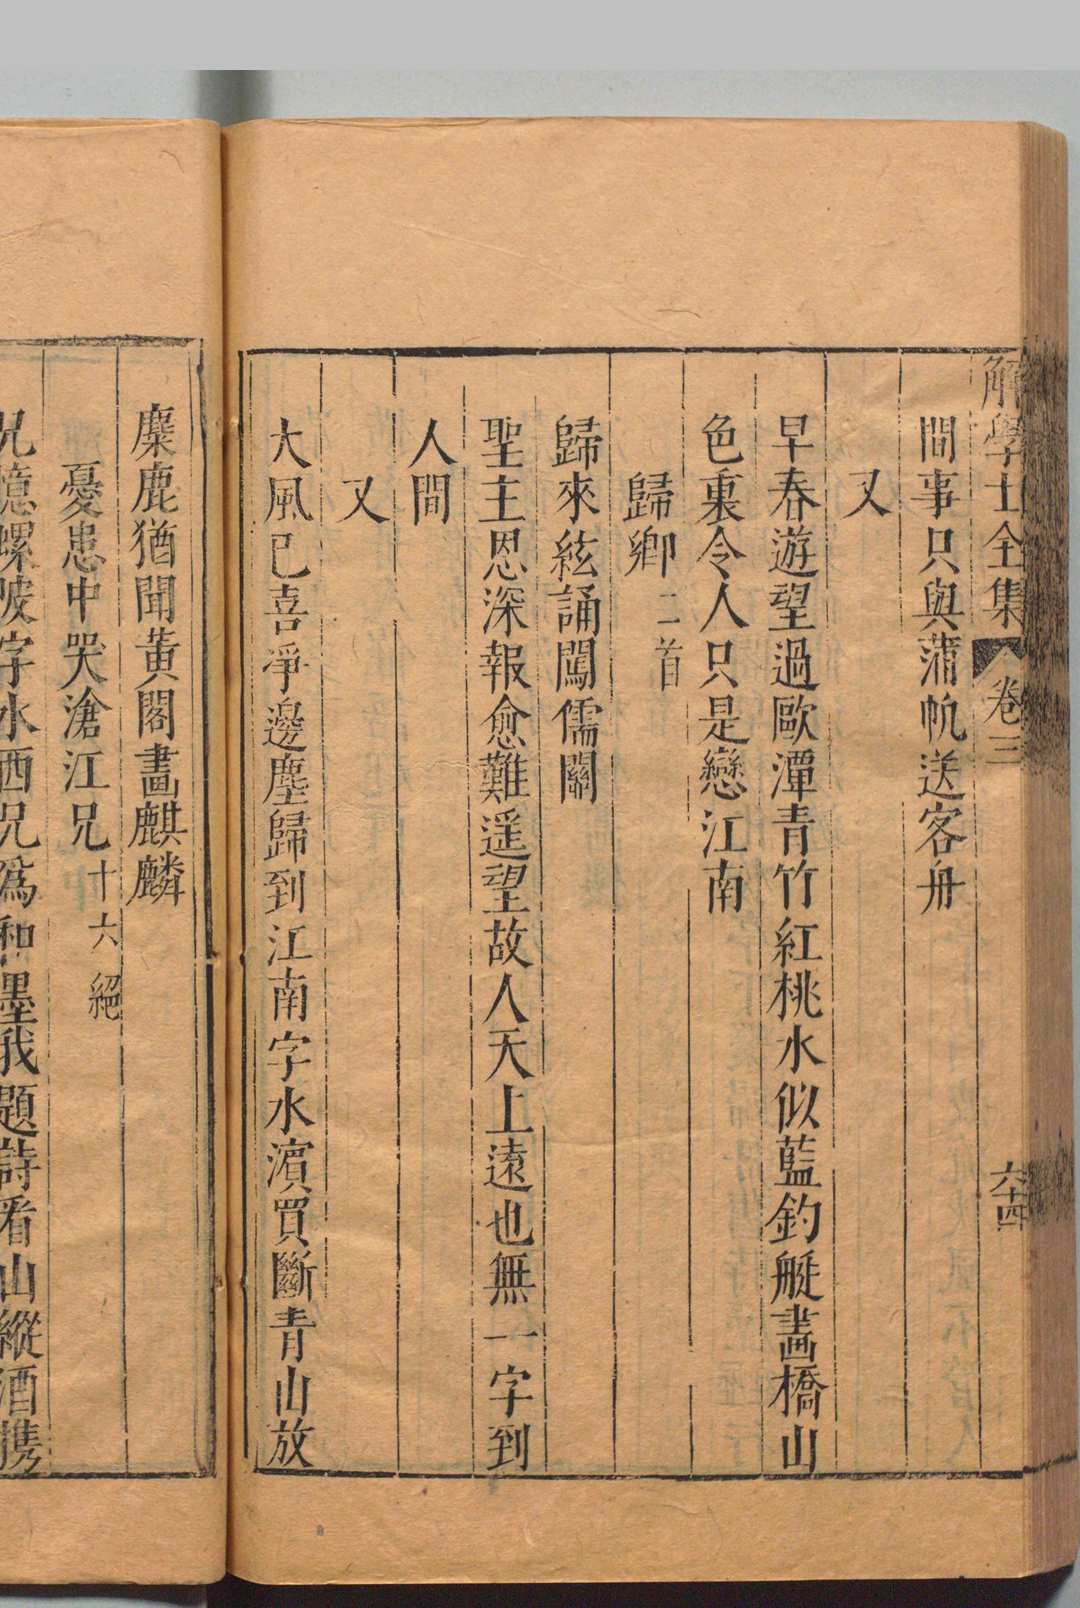 解學士全集 卷三 六十四
間事只與蒲帆送客舟
又
早春遊望過歐潭青竹紅桃水似藍釣艇畫橋山
色裏令人只是戀江南
歸鄉二首
歸來絃誦闖儒關
聖主恩深報愈難遥望故人天上遠也無一字到
人間
又
大風已喜凈邊塵歸到江南字水濵買斷青山放
麋鹿猶聞黄閣畫麒麟
憂患中哭滄江兄十六絕
兄憶螺陂字水西兄爲和墨我題詩看山縱酒携